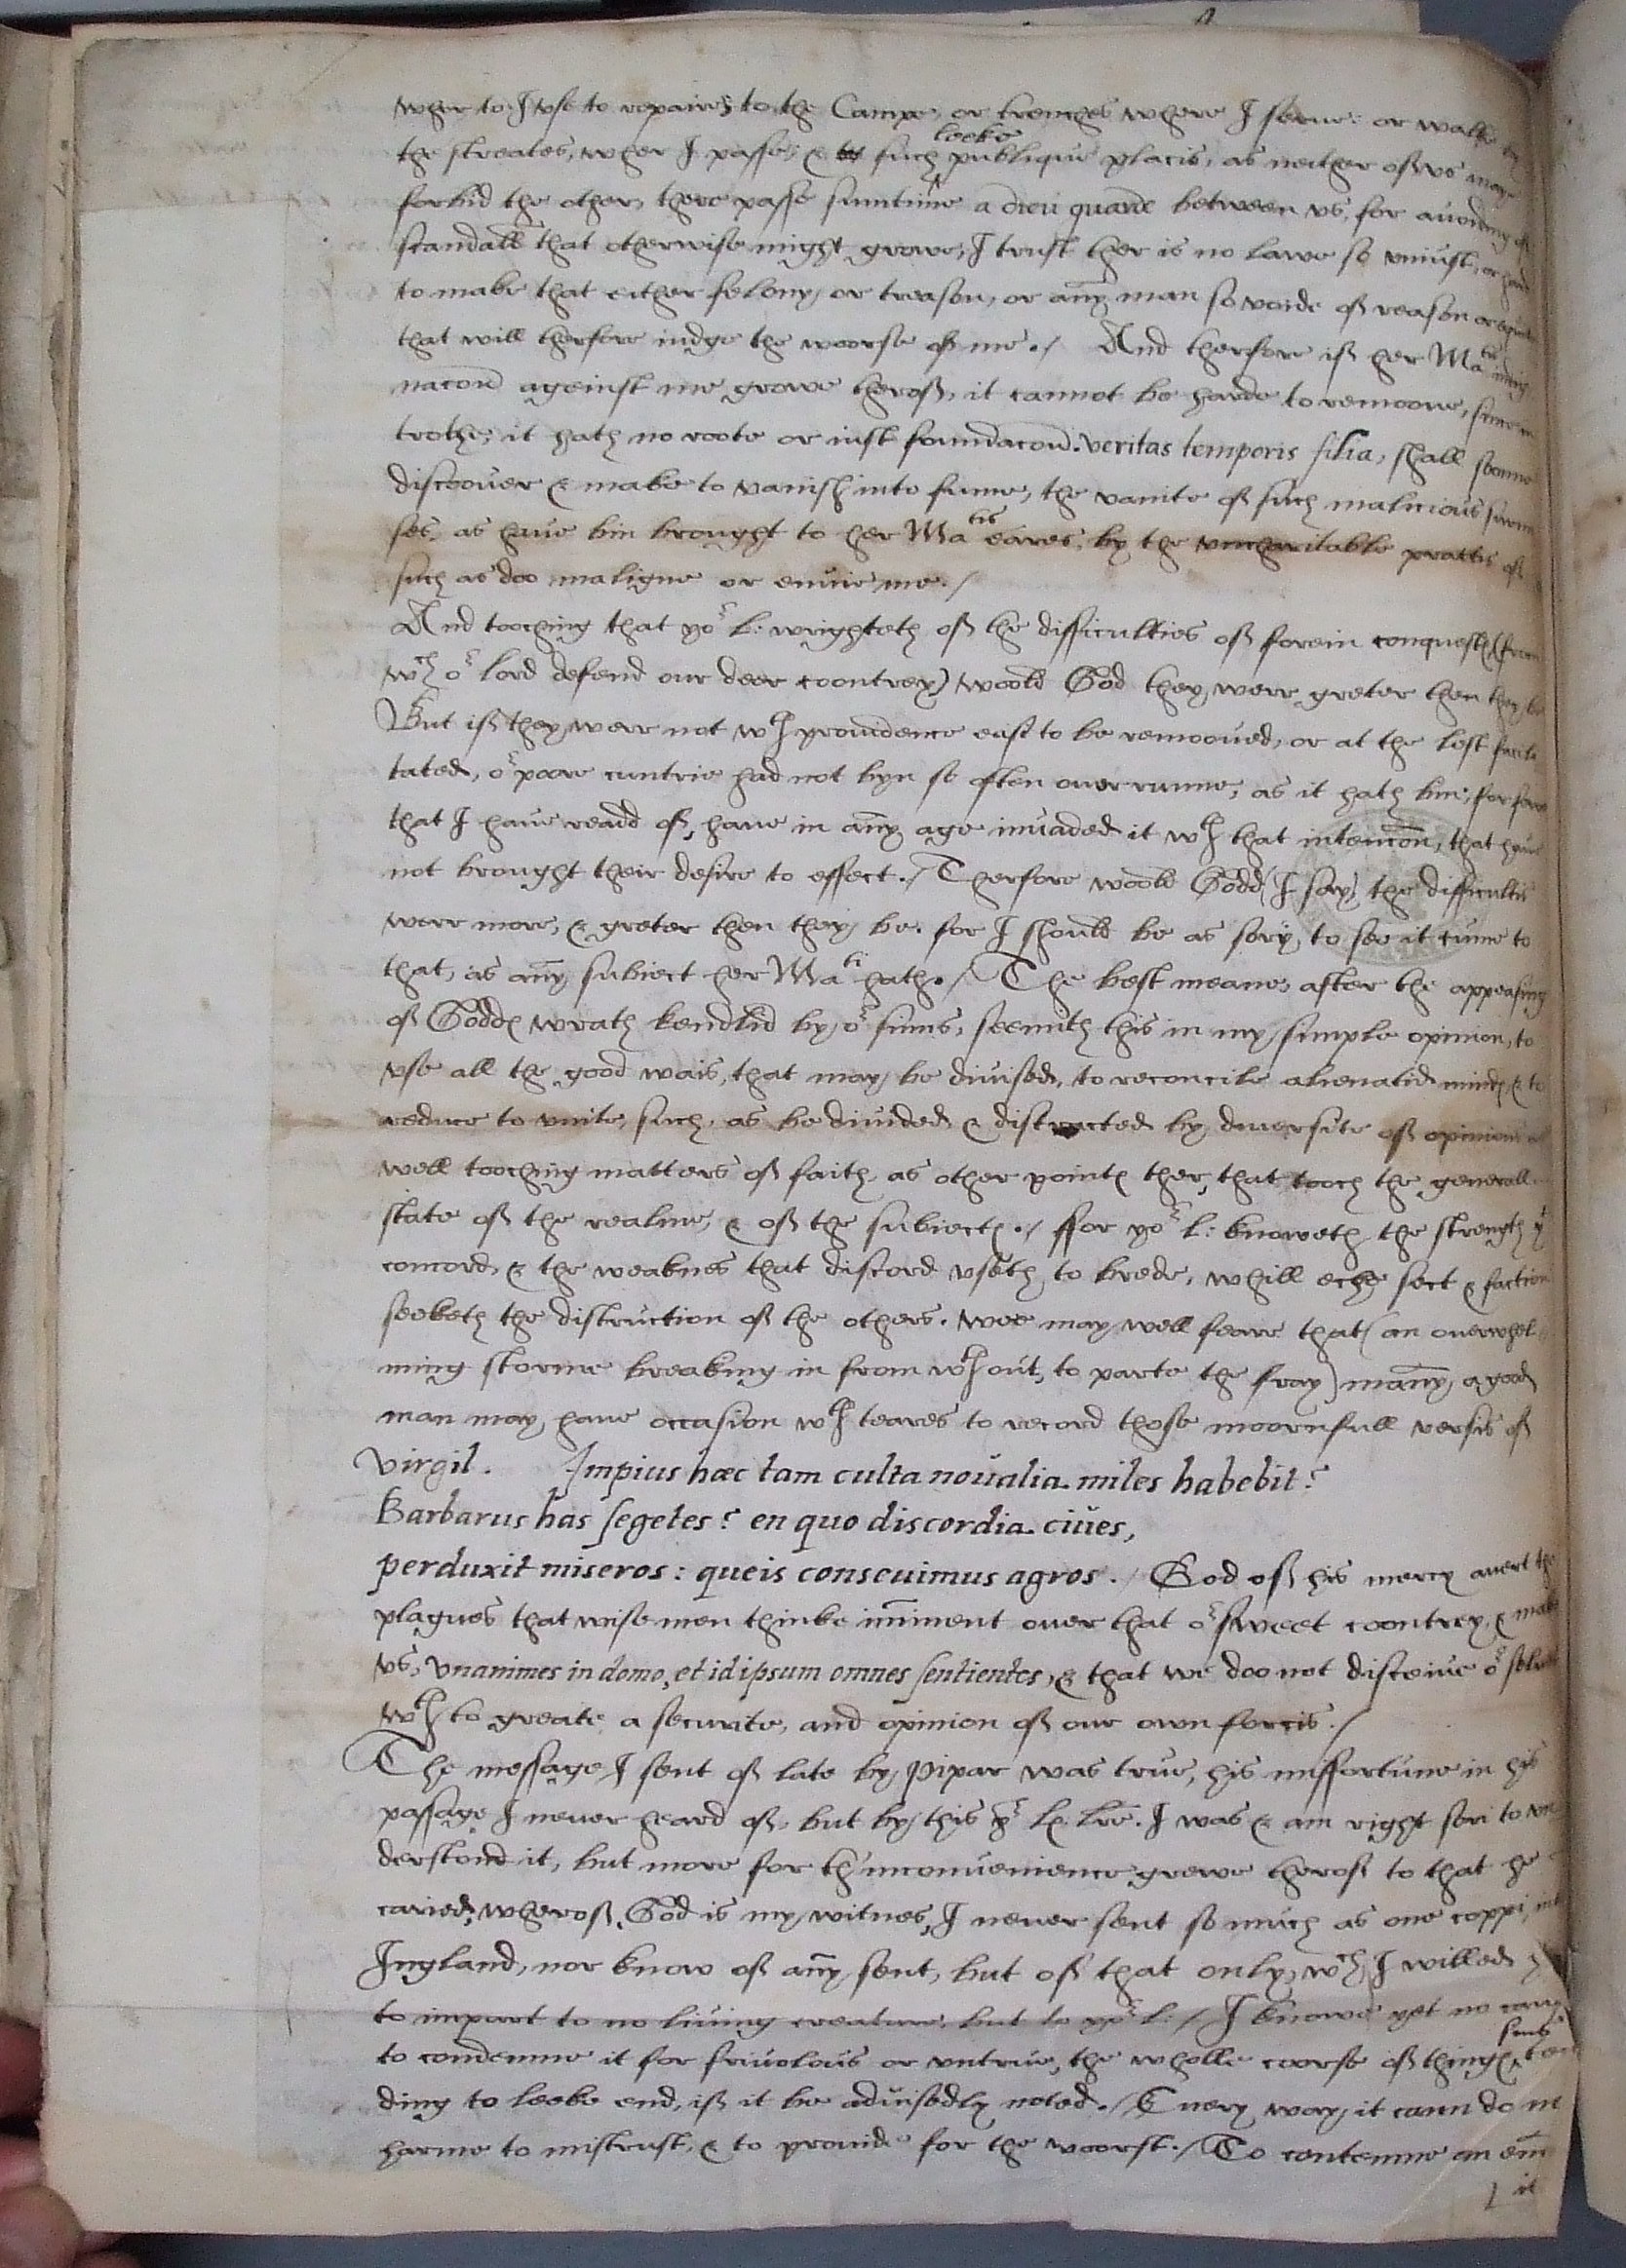 wher to I vse to repaire, to the Campe, or trenches where I serue: or walke by
the streates, wher I passe, & such leeke publique placis, as neither of vs may
forbid the other, there passe sumtime a dieu quarde between vs, for auoiding of
scandall that otherwise might growe, I trust ther is no lawe so vniust, or hard
to make that either felony, or treason, or any man so voide of reason or
that will therfore iudge the woorse of me./ And therfore if her Matis indig
nacon against me growe therof, it cannot be harde to remoove, sinc in
trothe, it hath no roote or iust foundacon. veritas temporis filia, shall soone
discoouer & make to vanish into fume, the vanite of such malicious surmi
ses, as haue bin brought to her Matis eares, by the vncharitable prattis of
such as doo maligne or enuie me./
And tooching that yor l: wrighteth of the difficulties of forein conquest, (from
wch or lord defend our deer coontrey) woold God they werr greter then they be
But if they werr not wth prouidence easi to be remooued, or at the lest facili
tated, or poore cuntrie had not byn so often ouerrunne, as it hath bin; for fewe
that I haue readd of, haue in any age inuaded it wth that intencon, that haue
not brought their desire to effect./ Therfore woold Godd (I say) the difficultis
werr more, & greter then they be. for I should be as sory, to see it cume to
that, as any subiect her Mati hath./ The best meane, after the appeasing
of Goddes wrath kendlid by or sinns, seemith this in my simple opinion, to
vse all the good wais, that may be diuised, to reconcile alienatid mindes & to
reduce to vnite, such, as be diuided & distracted by diuersite of opinions as
well tooching matters of faith, as other pointes ther, that tooch the generall
state of the realme, & of the subiectes./ ffor yor l: knoweth the strength yt
concord, & the weaknes that discord vseth to brede, whill eche sect & faction
seeketh the distruction of the others. wee may well feare that (an ouerwhel
ming storme breaking in from wthout, to parte the fray) many a good
man may haue occasion wth teares to record those moornfull versis of
Virgil. Impius hæc tam culta noualia miles habebit?
Barbarus has segetes? en quo discordia ciues,
perduxit miseros: queis conseuimus agros./ God of his mercy auert the
plagues that wise men thinke iminent ouer that or sweet coontrey, & make
vs, vnanimes in domo, et idipsum omnes sentientes, & that we doo not disceiue or selues
wth to greate a securite, and opinion of our own forcis./
The message I sent of late by Pipar was true, his missfortune in his
passage I neuer heard of, but by this yr lps lre. I was & am right sori to vn
derstond it, but more for th'inconuenience grewe therof to that he
caried, wherof, God is my witnes, I neuer sent so much as one coppi, into
Ingland, nor know of any sent, but of that only, wch I willed
to impart to no liuing creature, but to yor l:/ I knowe yet no caus
to condemne it for friuolous or vntrue, the wholle coorse of thinges sins ten
ding to leeke end, if it be aduisedly noted./ Euery way it cann do no
harme to mistrust, & to prouide for the woorst./ To contemne an
it